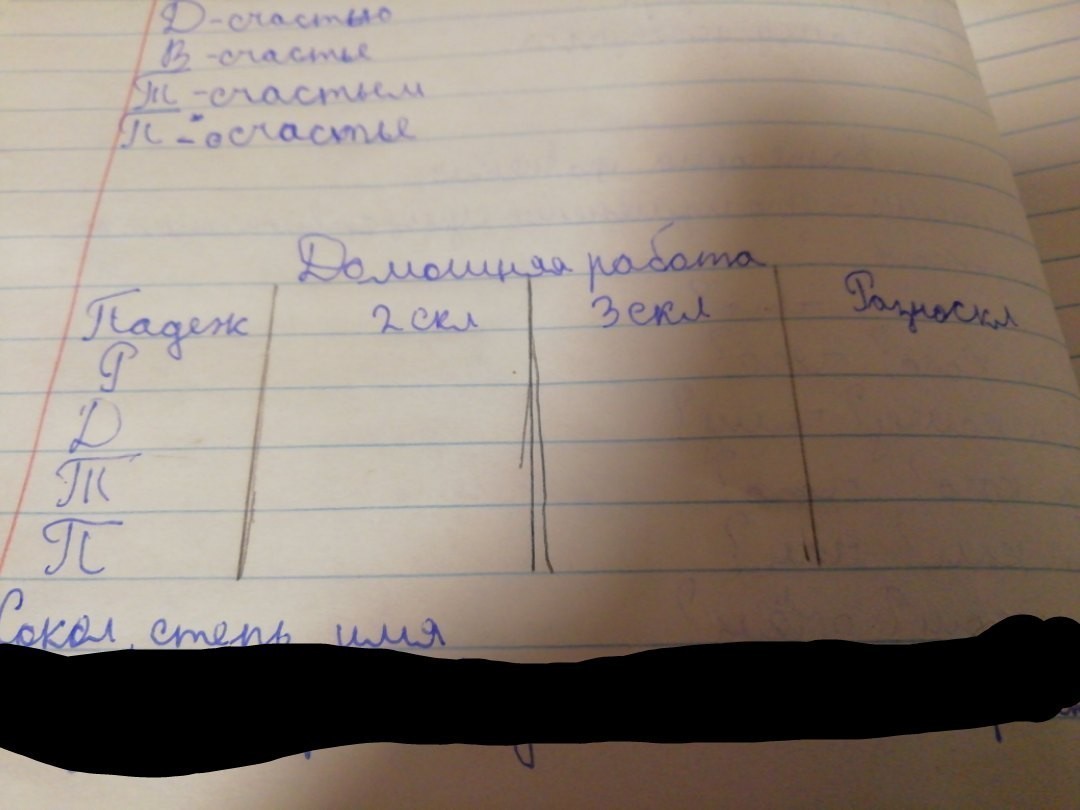 Д-счастью
В-счастье
Т-счастьем
П-о счастье
Домашняя работа
Падеж 2 скл 3 скл Разноскл
Р
Д
Т
П
Сокол, степь, имя